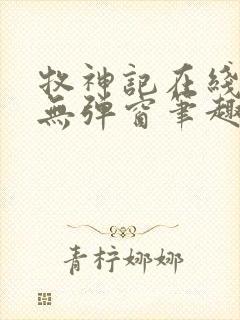 牧神記在綫
無彈窗筆趣
青柠娜娜